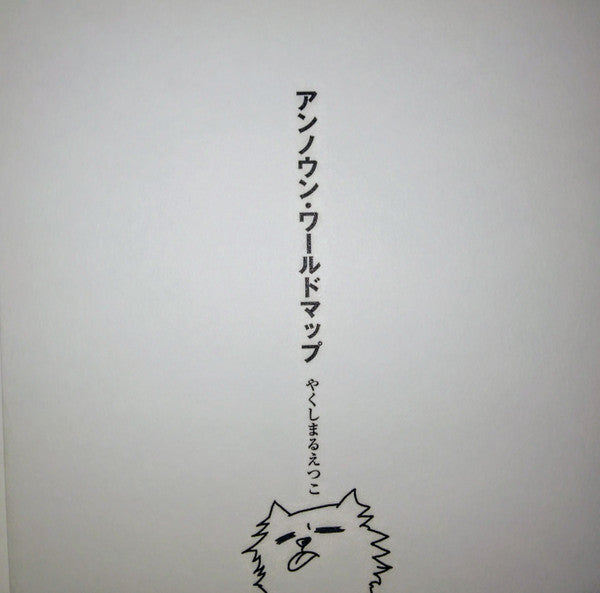 アンノウン・ワールドマップ
やくしまるえつこ